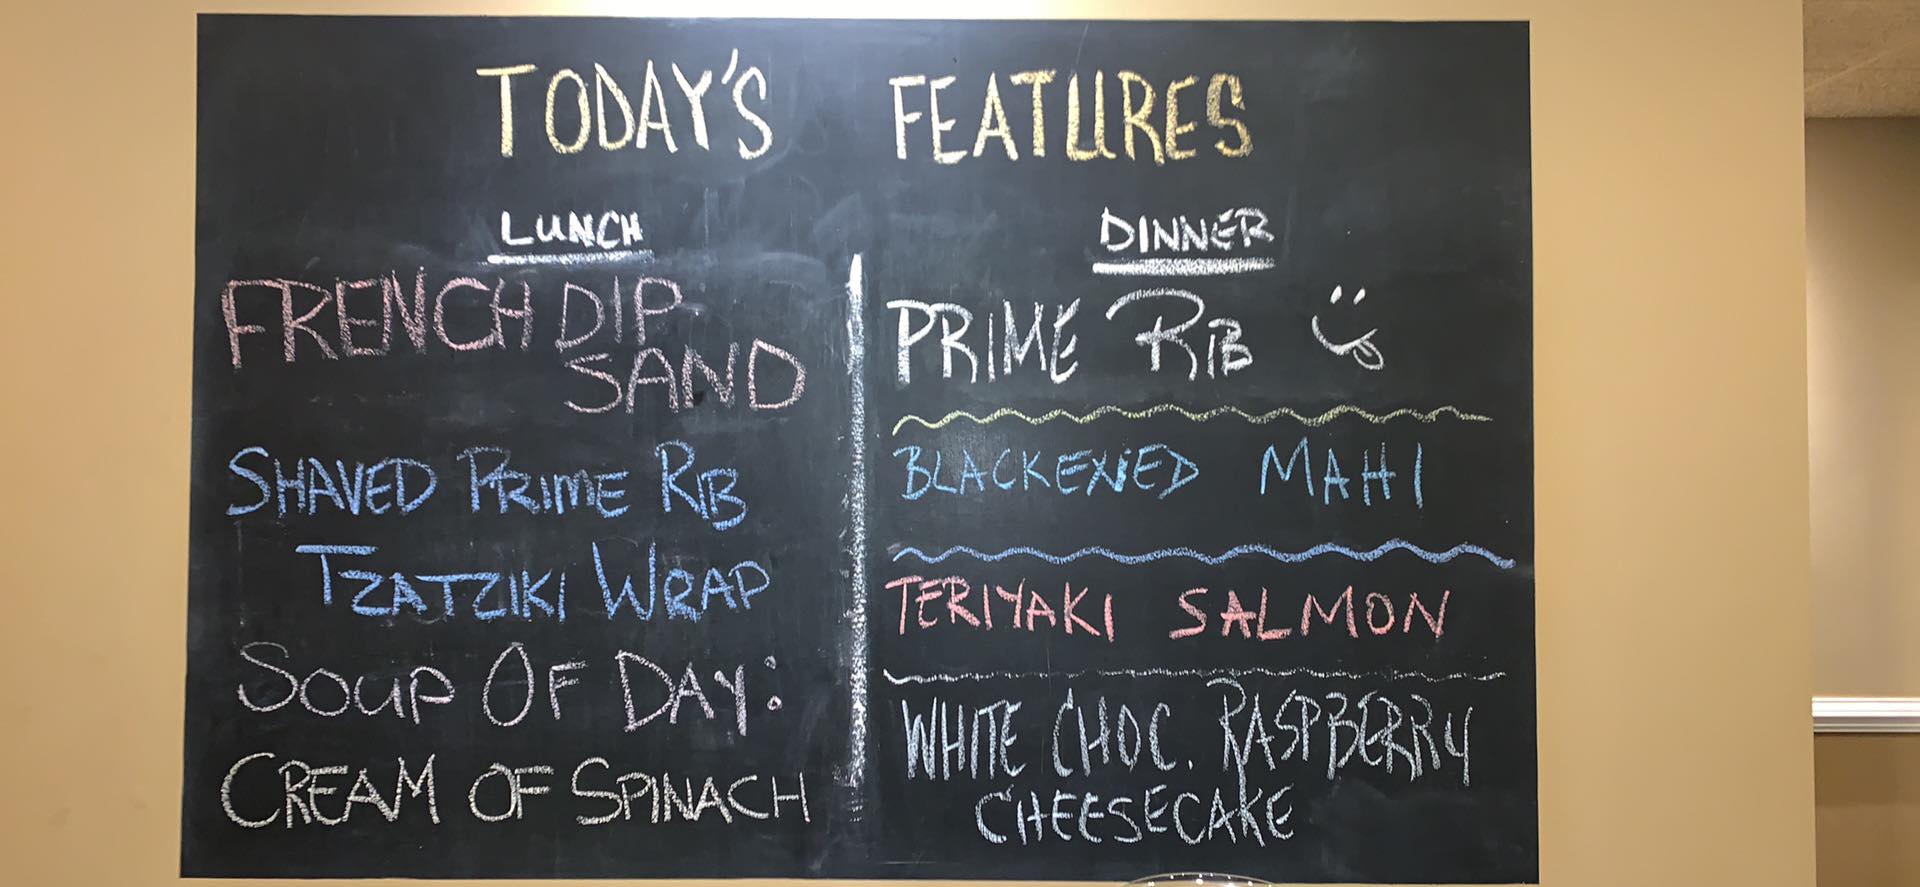 TODAY'S FEATURES
LUNCH
FRENCH DIP
SAND
SHAVED PRIME RIB
TZATZIKI WRAP
SOUP OF DAY:
CREAM OF SPINACH
DINNER
PRIME RIB
BLACKENED MAHI
TERIYAKI SALMON
WHITE CHOC. RASPBERRY
CHEESECAKE